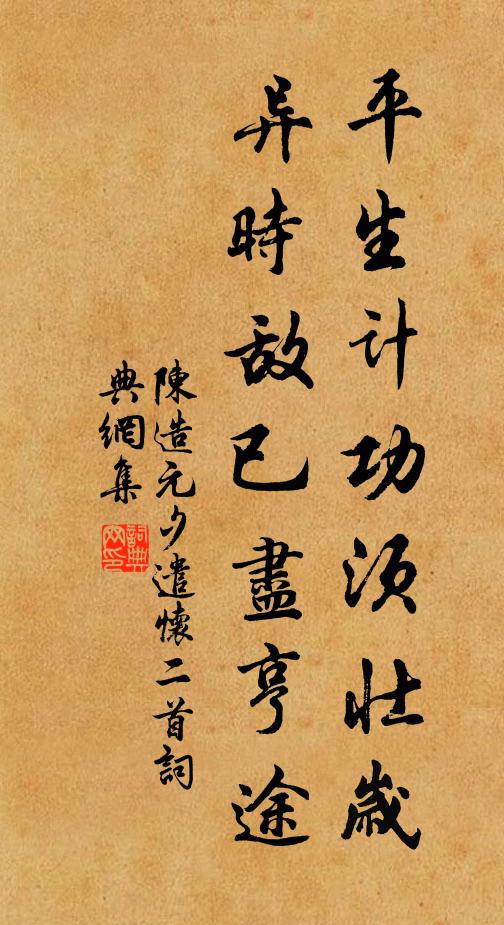 平生计功须壮歲
异時敌已盡亨途
陳造元夕遣懷二首詞
典網集
詞典网印